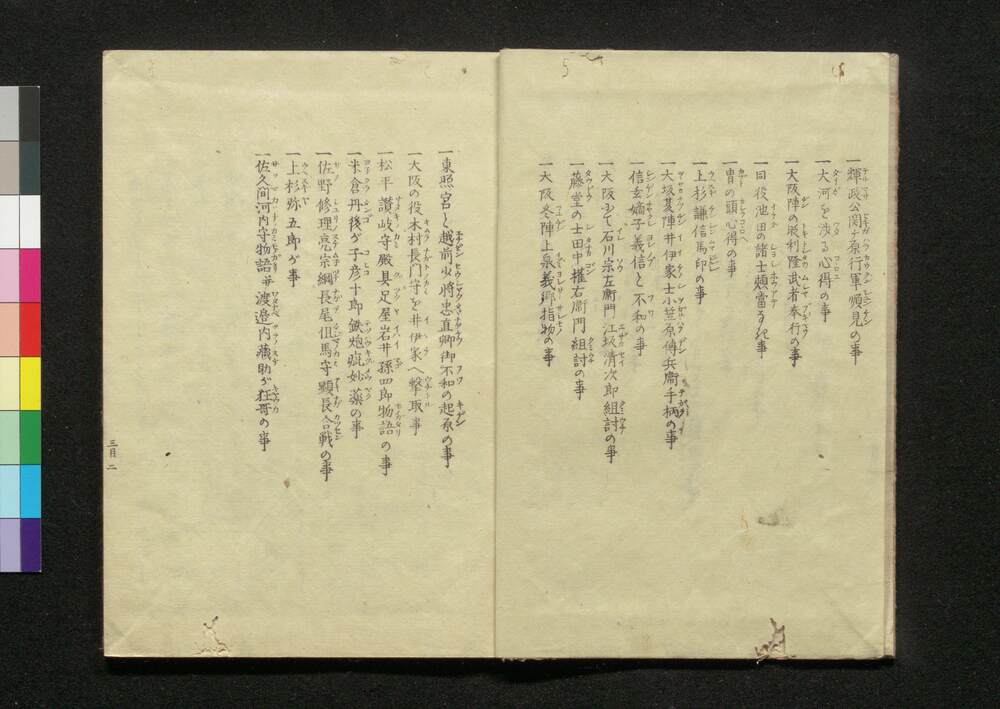 一輝政公関ヶ原行軍順見の事
一大河を渉る心得の事
一大阪陣の時利隆武者奉行の事
一同役池田の諸士頬當なき事
一冑の頭心得の事
一上杉謙信馬印の事
一大坂夏陣井伊家士小笠原傳兵衞手柄の事
一信玄嫡子義信と不和の事
一大阪にて石川宗左衞門江坂清次郎組討の事
一藤堂の士田中権右衞門組討の事
一大阪冬陣上泉義郷指物の事
一東照宮と越前少将忠直卿御不和の起原の事
一大阪の役木村長門守を井伊家へ撃取事
一松平讃岐守殿具足屋岩井孫四郎物語の事
一米倉丹後が子彦十郎鉄炮疵妙薬の事
一佐野修理亮宗綱長尾但馬守顕長合戦の事
一上杉弥五郎が事
一佐久间河内守物語并渡邉内蔵助が狂哥の事
三目 二